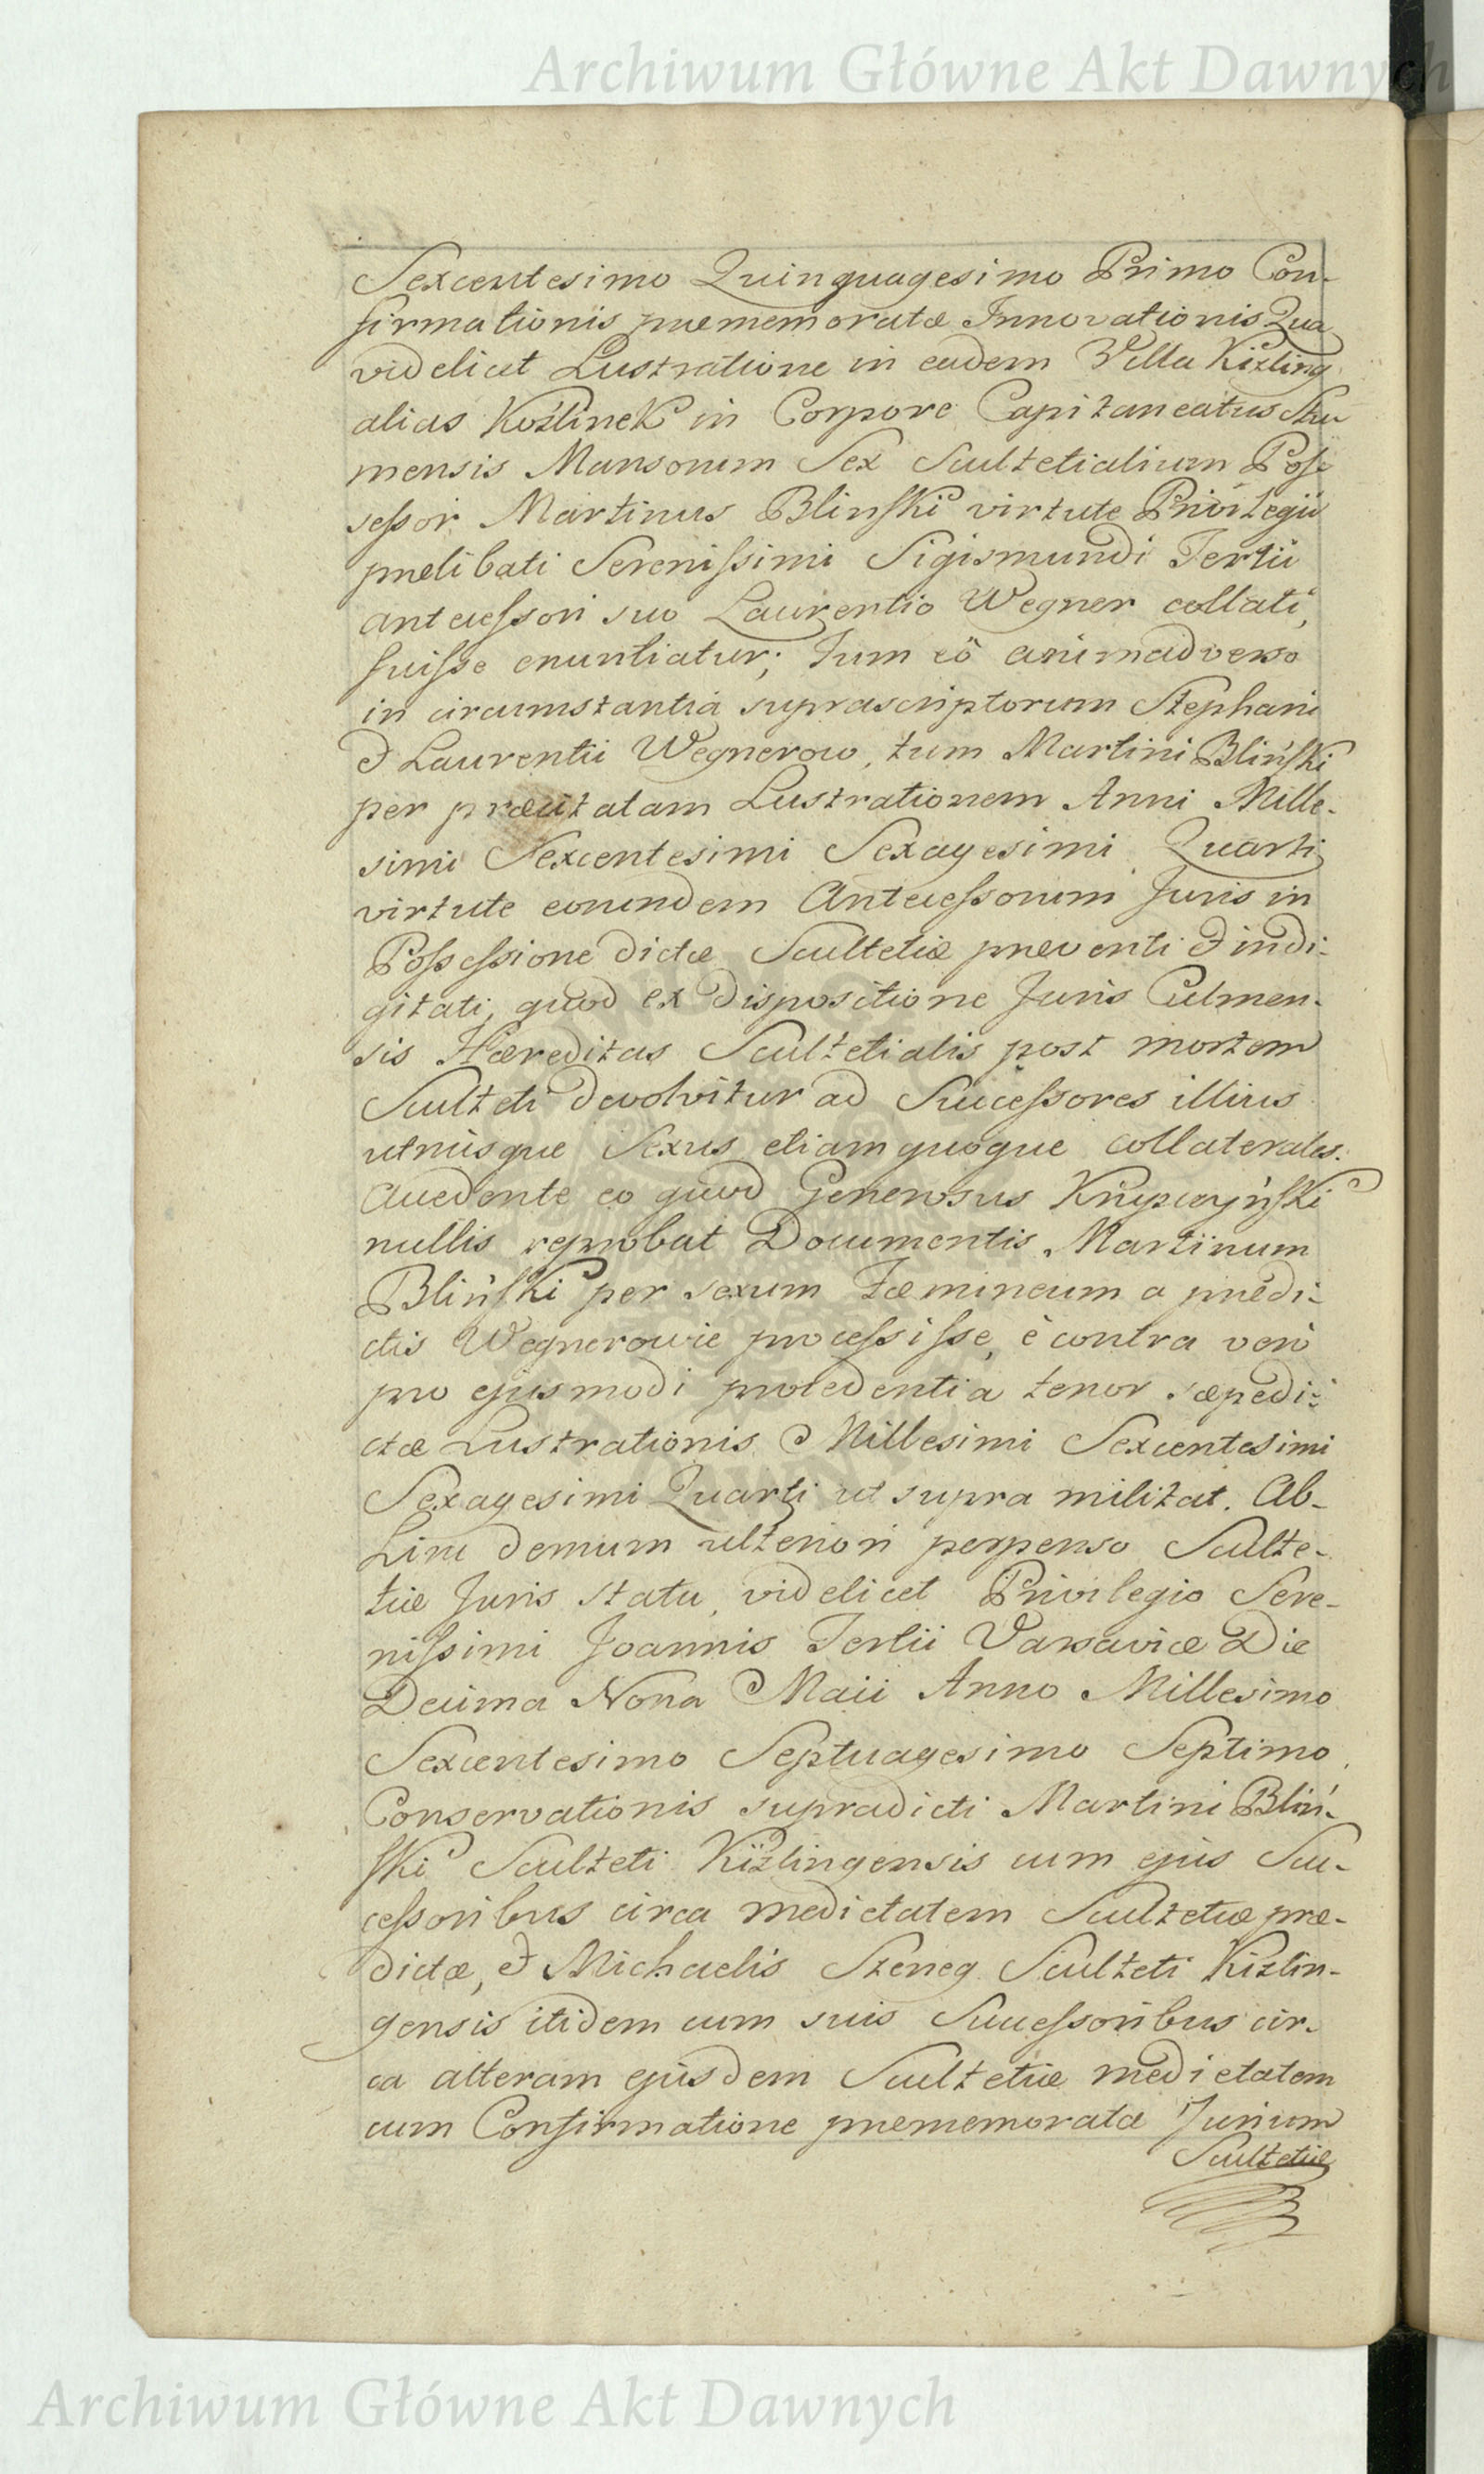 Archiwum Główne Akt Dawnych
Sexcentesimo Quinquagesimo Primo Con-
firmationis præmemoratæ Innovationis Qua
videlicet Lustratione in eadem Villa Kizling
alias Koźlinek in Corpore Capitaneatus Stu
mensis Mansorum Sex Scultetialium Pos-
sessor Martinus Blinski virtute Privilegii
prælibati Serenissimi Sigismundi Tertii
antecessori suo Laurentio Wegner collati,
fuisse enuntiatur; Tum eô animadverso
in circumstantia suprascriptorum Stephani
& Laurentii Wegnerow, tum Martini Bliński
per præcitatam Lustrationem Anni Mille-
simi Sexcentesimi Sexagesimi Quarti
virtute eorundem Antecessorum Juris in
Possessione dictæ Scultetiæ præventi & indi-
gitati, quod ex dispositione Juris Culmen-
sis Hæreditas Scultetialis post mortem
Sculteti devolvitur ad Successores illius
utriusque Sexus etiam quoque collaterales.
accedente eo quod Generosus Krypczyński
nullis reprobat Documentis, Martinum
Bliński per sexum Fæmineum a prædi-
ctis Wegnerowie processisse, è contra verò
pro ejusmodi procedentia tenor sæpedi-
ctæ Lustrationis Millesimi Sexcentesimi
Sexagesimi Quarti ut supra militat. Ab-
hinc demum ulteriori perpenso Sculte-
tiæ Juris statu, videlicet Privilegio Sere-
nissimi Joannis Tertii Varsaviæ Die
Decima Nona Maii Anno Millesimo
Sexcentesimo Septuagesimo Septimo,
Conservationis supradicti Martini Bliń-
ski Sculteti Kizlingensis cum ejus Suc-
cessoribus circa medietatem Scultetiæ præ-
dictæ, & Michaelis Szeneg Sculteti Kizlin-
gensis itidem cum suis Successoribus cir-
ca alteram ejusdem Scultetiæ medietatem
cum Confirmatione præmemorata Jurium
Scultetiæ
Archiwum Główne Akt Dawnych